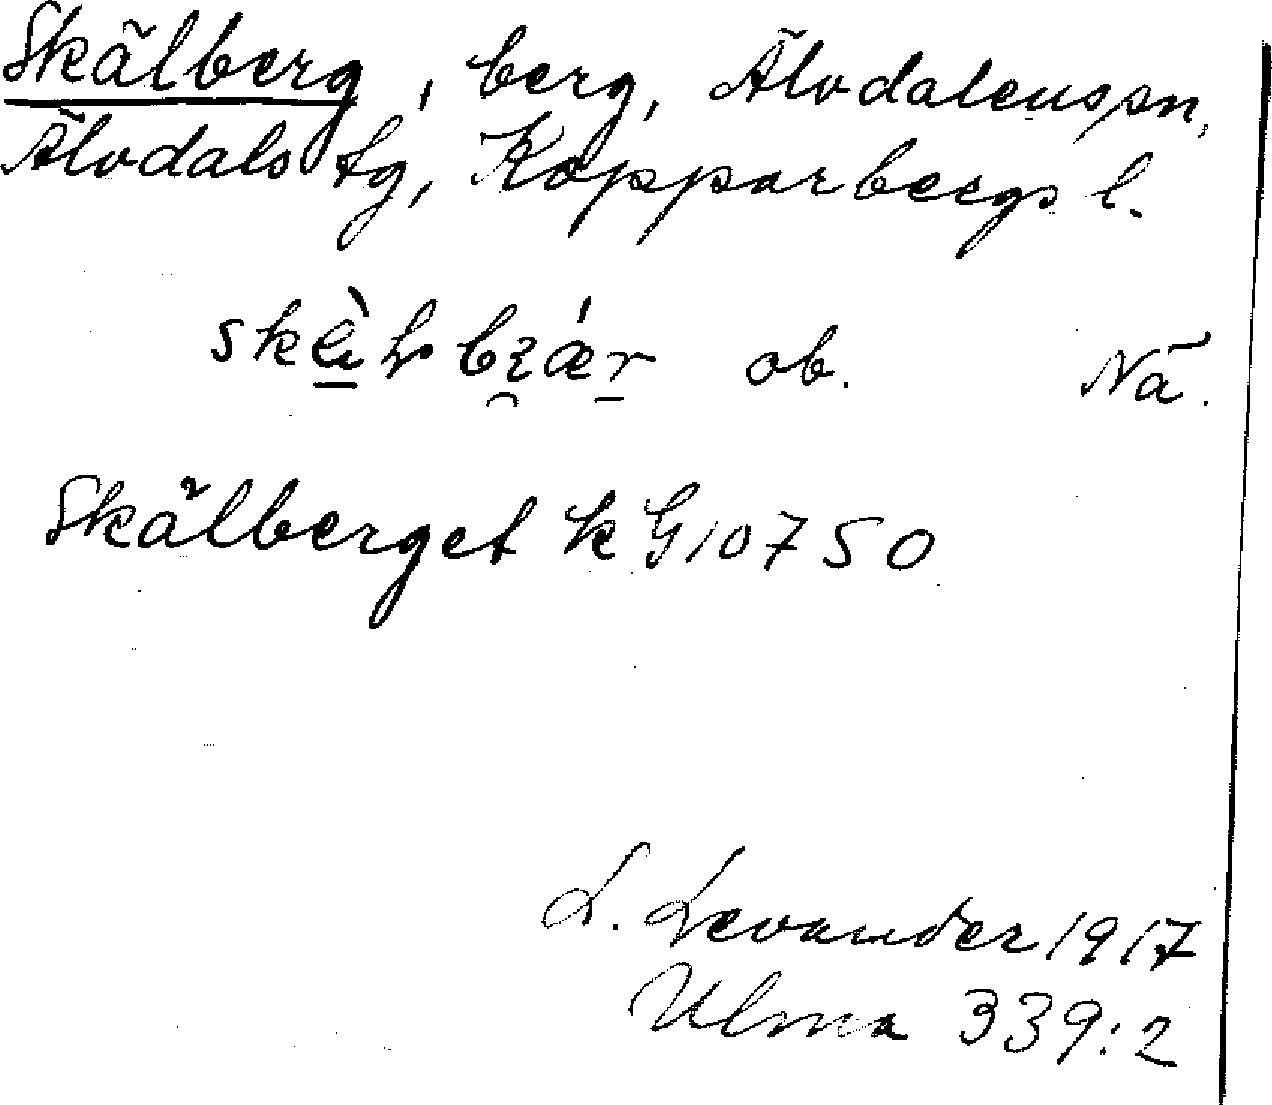 Skälberg, berg, Älvdalens sn,
Älvdals tg, Kopparbergs l.
ob. Nä.
Skälberget k G 10750
L. Levander 1917
Ulma 339:2